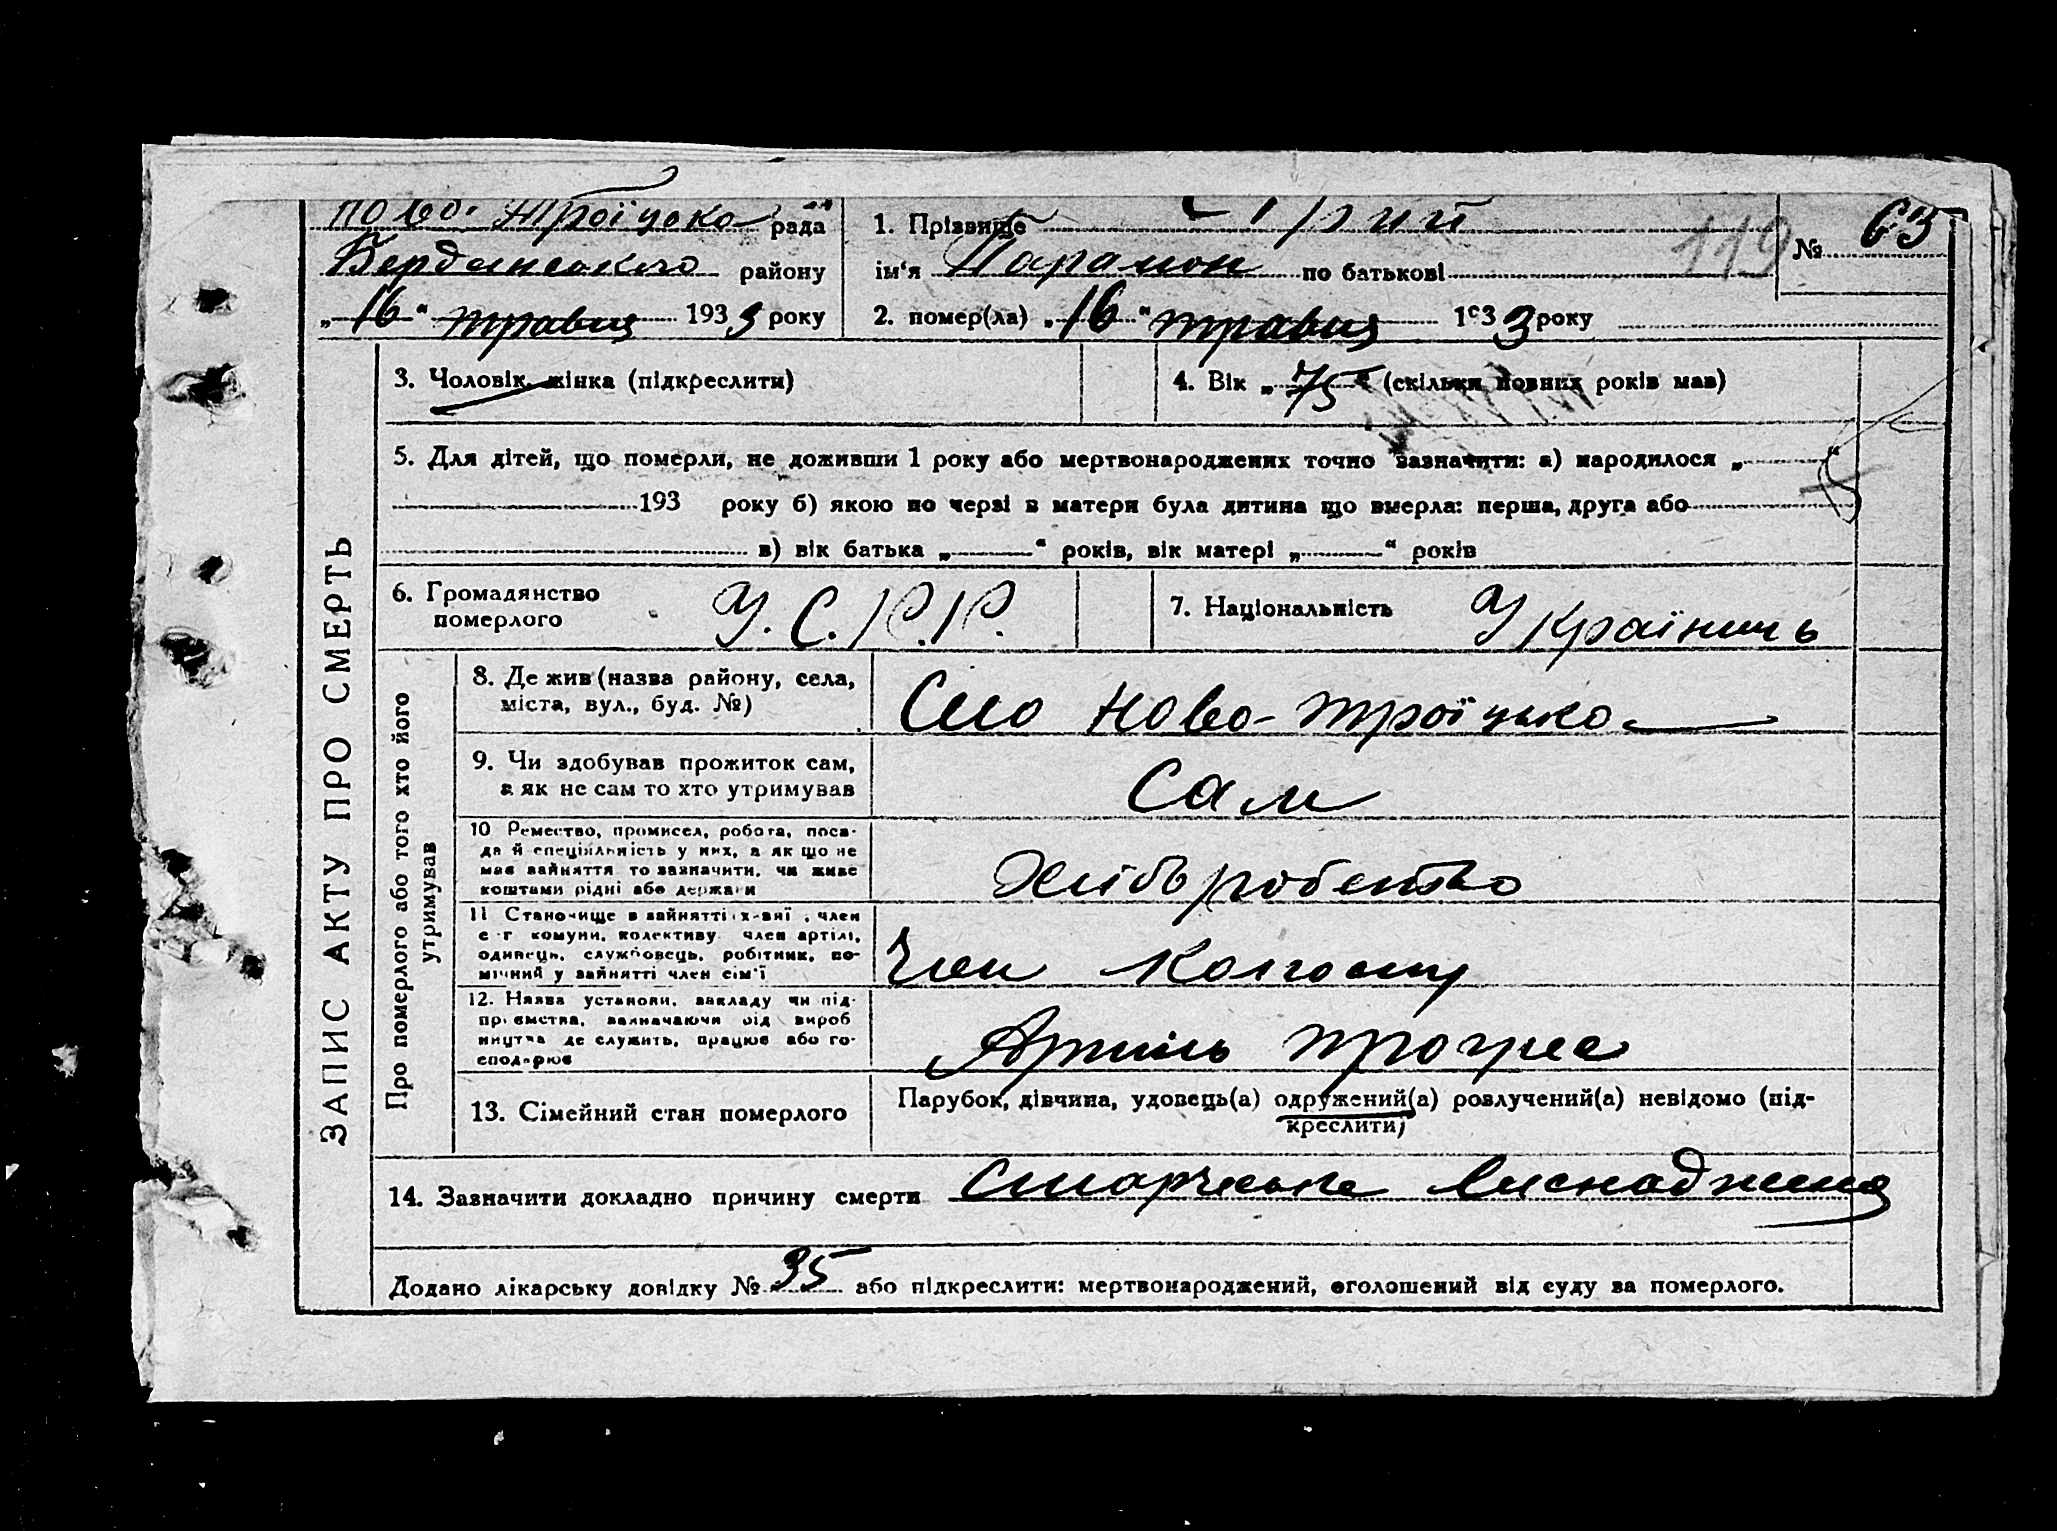 Ново-Троїцько рада
Бердянського району
„16“ травня 1933 року
1. Прізвище
ім'я Парамон по батькові
119
№ 63
2. помер(ла) „16“ травня 1933 року
ЗАПИС АКТУ ПРО СМЕРТЬ
3. Чоловік, жінка (підкреслити)
4. Вік „75“ (скільки повних років мав)
5. Для дітей, що померли, не доживши 1 року або мертвонароджених точно зазначити: а) народилося „ “
193 року б) якою по черзі в матери була дитина що вмерла: перша, друга або
в) вік батька „ “ років, вік матері „ “ років
6. Громадянство
померлого
У.С.Р.Р.
7. Національність Українць
Про померлого або того хто його
утримував
8. Де жив (назва району, села,
міста, вул., буд. №)
Село Ново-Троїцько
9. Чи здобував прожиток сам,
а як не сам то хто утримував
Сам
10 Ремество, промисел, робота, поса-
да й спеціяльність у них, а як що не
мав зайняття то зазначити, чи живе
коштами рідні або держави
Хлібробство
11 Становище в зайнятті: х-вні, член
с-г комуни, колективу член артілі,
одинець, службовець, робітник, по-
мічний у зайнятті член сім'ї
Член колгоспу
12. Назва установи, закладу чи під-
приємства, зазначаючи від вироб
ництва де служить, працює або го-
сподарює
Артіль прогрес
13. Сімейний стан померлого
Парубок, дівчина, удовець(а) одружений(а) розлучений(а) невідомо (під-
креслити)
14. Зазначити докладно причину смерти Старческе виснаження
Додано лікарську довідку № 35 або підкреслити: мертвонароджений, оголошений від суду за померлого.